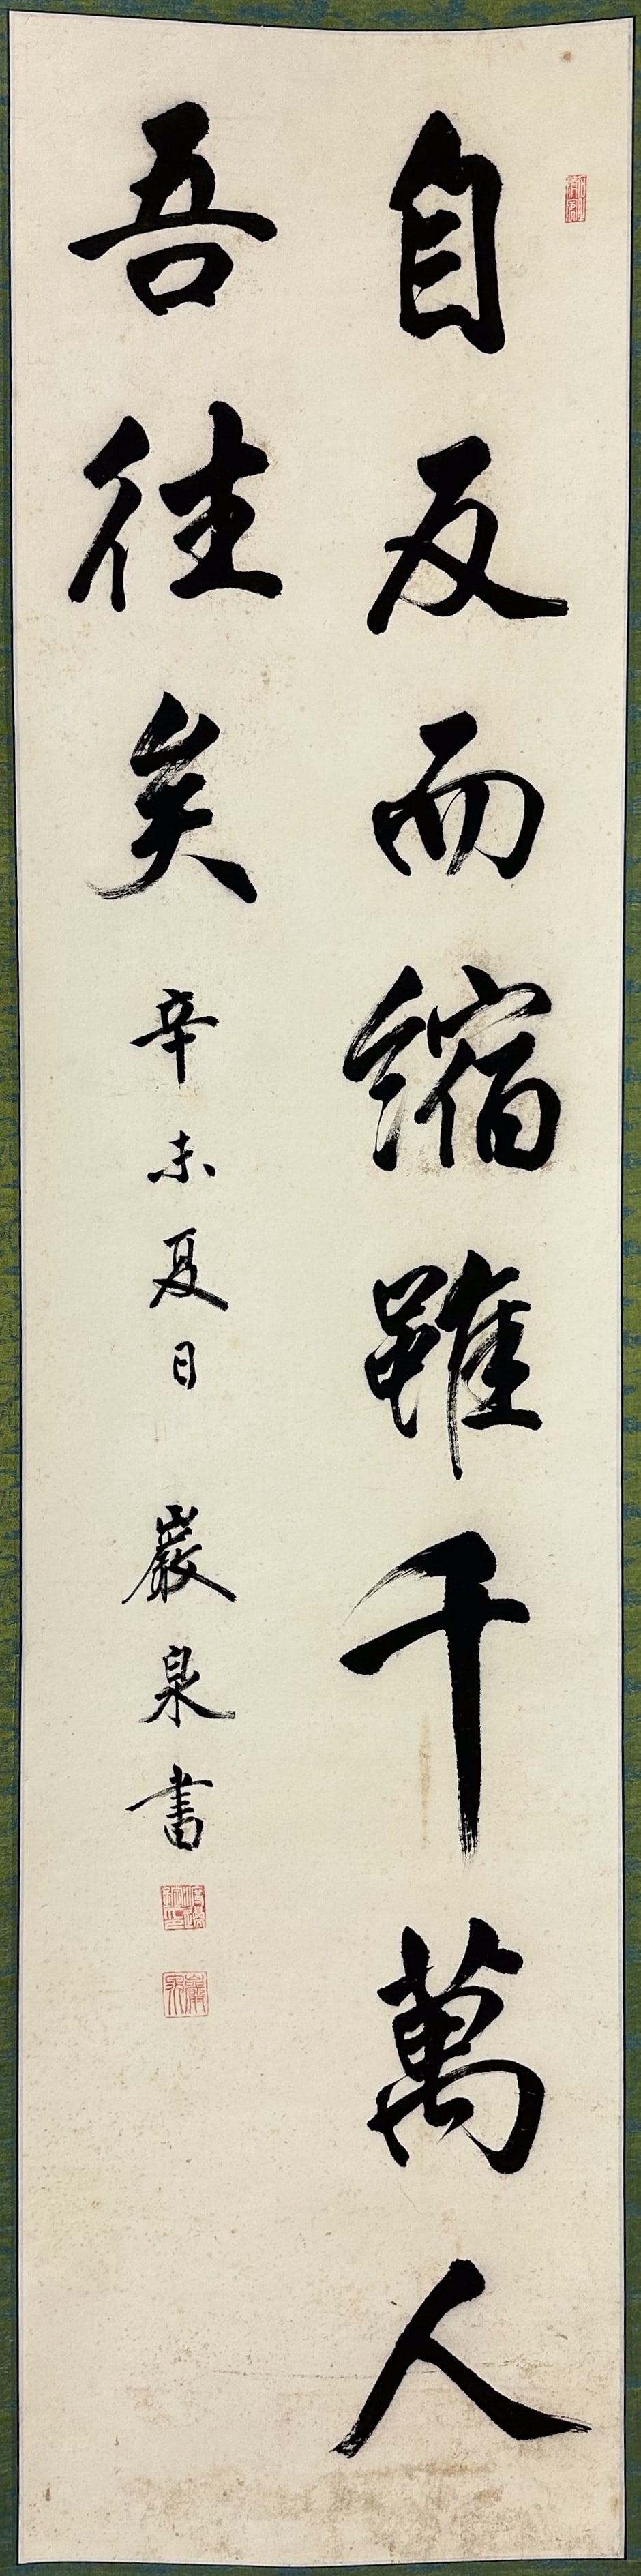 自反而縮雖千萬人
吾往矣 辛未夏日 巖泉書